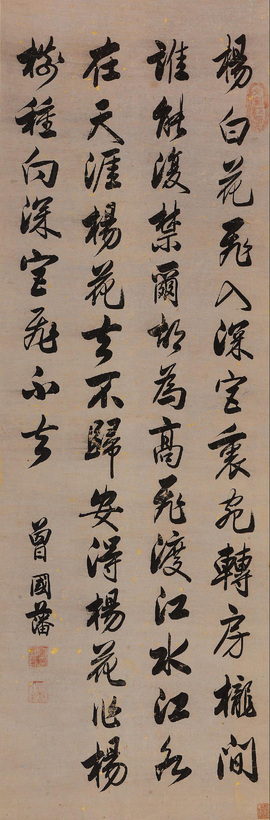 楊白花飛入深宮裏宛轉房櫳間
誰能復禁爾胡為高飛渡江水江水
在天涯楊花去不歸安得楊花作楊
樹種向深宮飛不去
曾國藩